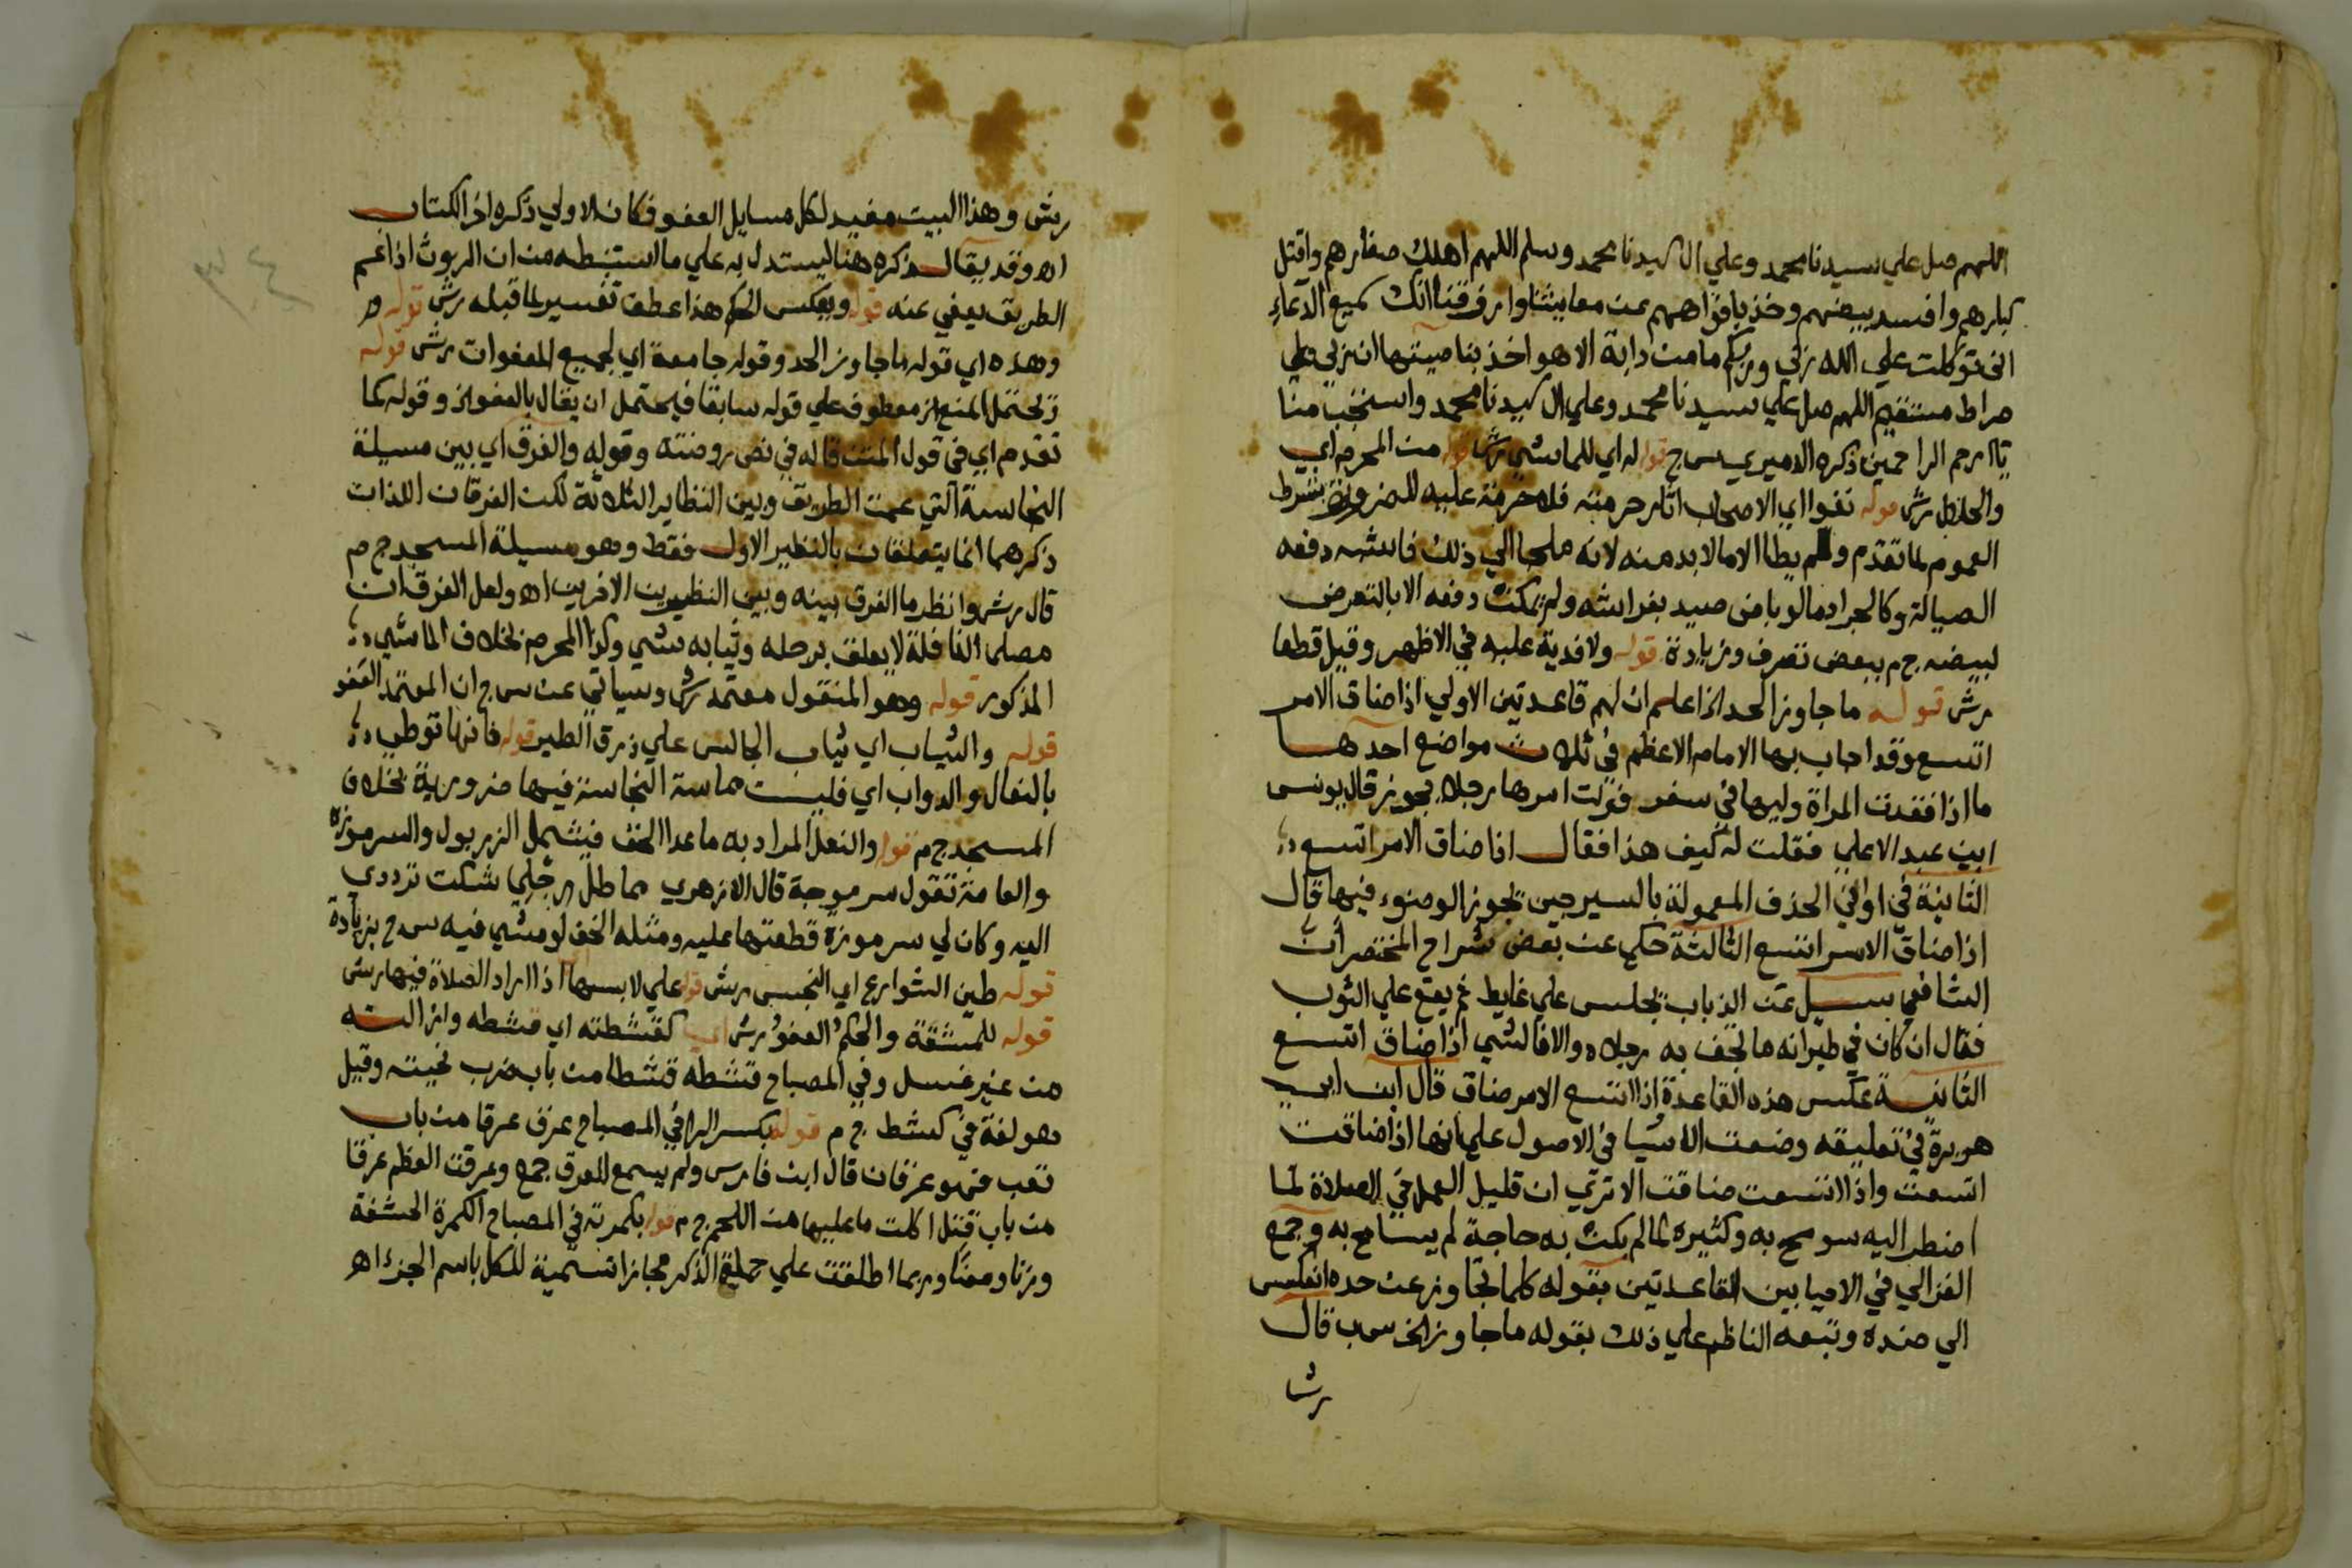 اللهم صل علي سيدنا محمد وعلي ال سيدنا محمد وسلم اللهم اهلك صغارهم واقتل
كبارهم وافسد بيضهم وخذ بافواههم عن معايشنا وارزقنا انك سميع الدعاء
اني توكلت علي الله ربي وربكم ما من دابة الا هو اخذ بناصيتها ان ربي علي
صراط مستقيم اللهم صل علي سيدنا محمد وعلي ال سيدنا محمد واستجب منا
يا ارحم الراحمين ذكره الدميري س ج قوله له اي للماشي رش قوله من المحرم اي
والحلال رش قوله نفوا اي الاصحاب اثار حرمته فلا حرمة عليه للضرورة بشرط
العموم لما تقدم ولم يطا الا ما لا بد منه لانه ملجا الي ذلك فاشبه دفعه
الصيالة وكالجراد ما لو باض صيد بفراشه ولم يمكن دفعه الا بالتعرض
لبيضه ج م ببعض تصرف وزيادة قوله ولا فدية عليه في الاظهر وقيل قطعا
رش قوله ما جاوز الحد الخ اعلم ان لهم قاعدتين الاولي اذا ضاق الامر
اتسع وقد اجاب بها الامام الاعظم في ثلاث مواضع احدها
ما اذا فقدت المراة وليها في سفر فولت امرها رجلا يجوز قال يونس
ابن عبد الاعلي فقلت له كيف هذا فقال اذا ضاق الامر اتسع
الثانية في اواني الخذف المعمولة بالسرجين تجوز الوضوء فيها قال
اذا ضاق الامر اتسع الثالثة حكي عن بعض شراح المختصر ان
الشافعي سيل عن الذباب يجلس علي غايط ثم يقع علي الثوب
فقال ان كان في طيرانه ما تجف به رجلاه والا فالشي اذا ضاق اتسع
الثانية عكس هذه القاعدة اذا اتسع الامر ضاق قال ابن ابي
هريرة في تعليقه وضعت الاشيا في الاصول علي انها اذا ضاقت
اتسعت واذا اتسعت ضاقت الا تري ان قليل العمل في الصلاة لما
اضطر اليه سومح به وكثيره لما لم يكن به حاجة لم يسامح به وجمع
الغزالي في الاحيا بين القاعدتين بقوله كلما تجاوز عن حده انعكس
الي ضده وتبعه الناظم علي ذلك بقوله ما جاوز الخ س ب قال
رش
رش وهذا البيت مفيد لكل مسايل العفو فكان الاولي ذكره اخر الكتاب
اه وقد يقال ذكره هنا ليستدل به علي ما استنبطه من ان الروث اذا عم
الطريق يعفي عنه قوله ويعكس الحكم هذا عطف تفسير لما قبله رش قوله
وهذه اي قوله ما جاوز الحد وقوله جامعة اي لجميع المعفوات رش قوله
تحتمل المنع الخ معطوف علي قوله سابقا فيحتمل ان يقال بالعفو الخ وقوله كما
تقدم اي في قول المتن قاله في نص روضته وقوله والفرق اي بين مسيلة
النجاسة التي عمت الطريق وبين النظاير الثلاثة لكن الفرقان اللذان
ذكرهما انما يتعلقان بالنظير الاول فقط وهو مسيلة المسجد ج م
قال رش وانظر ما الفرق بينه وبين النظيرين الاخرين اه ولعل الفرق ان
مصلي النافلة لا يعلق برجله وثيابه شي وكذا المحرم بخلاف الماشي
المذكور قوله وهو المنقول معتمد رش وسياتي عن س ج ان المعتمد العفو
قوله والثياب اي ثياب الجالس علي ذرق الطير قوله فانها توطي
بالنعال والدواب اي فليست مماسة النجاسة فيها ضرورية بخلاف
المسجد ج م قوله والنعل المراد به ما عدا الخف فيشمل الزربول والسرموزة
والعامة تقول سرموجة قال الازهري مماطل رجلي شكت ترددي
اليه وكان لي سرموزة قطعتها عليه ومثله الخف لو مشي فيه س ج بزيادة
قوله طين الشوارع اي النجس رش قوله علي لابسها اذا اراد الصلاة فيها رش
قوله للمشقة والحكم العفو رش كقشطته اي قشطه وازالته
من غير غسل وفي المصباح قشطه قشطا من باب ضرب نحيته وقيل
هو لغة في كشط ج م قوله بكسر الرا في المصباح عرق عرقا من باب
تعب فهو عرقان قال ابن فارس ولم يسمع للعرق جمع وعرقت العظم عرقا
من باب قتل اكلت ما عليها من اللحم ج م قوله بكمرته في المصباح الكمرة الحشفة
وزنا ومعنا وربما اطلقت علي جملة الذكر مجازا تسمية للكل باسم الجزء اه